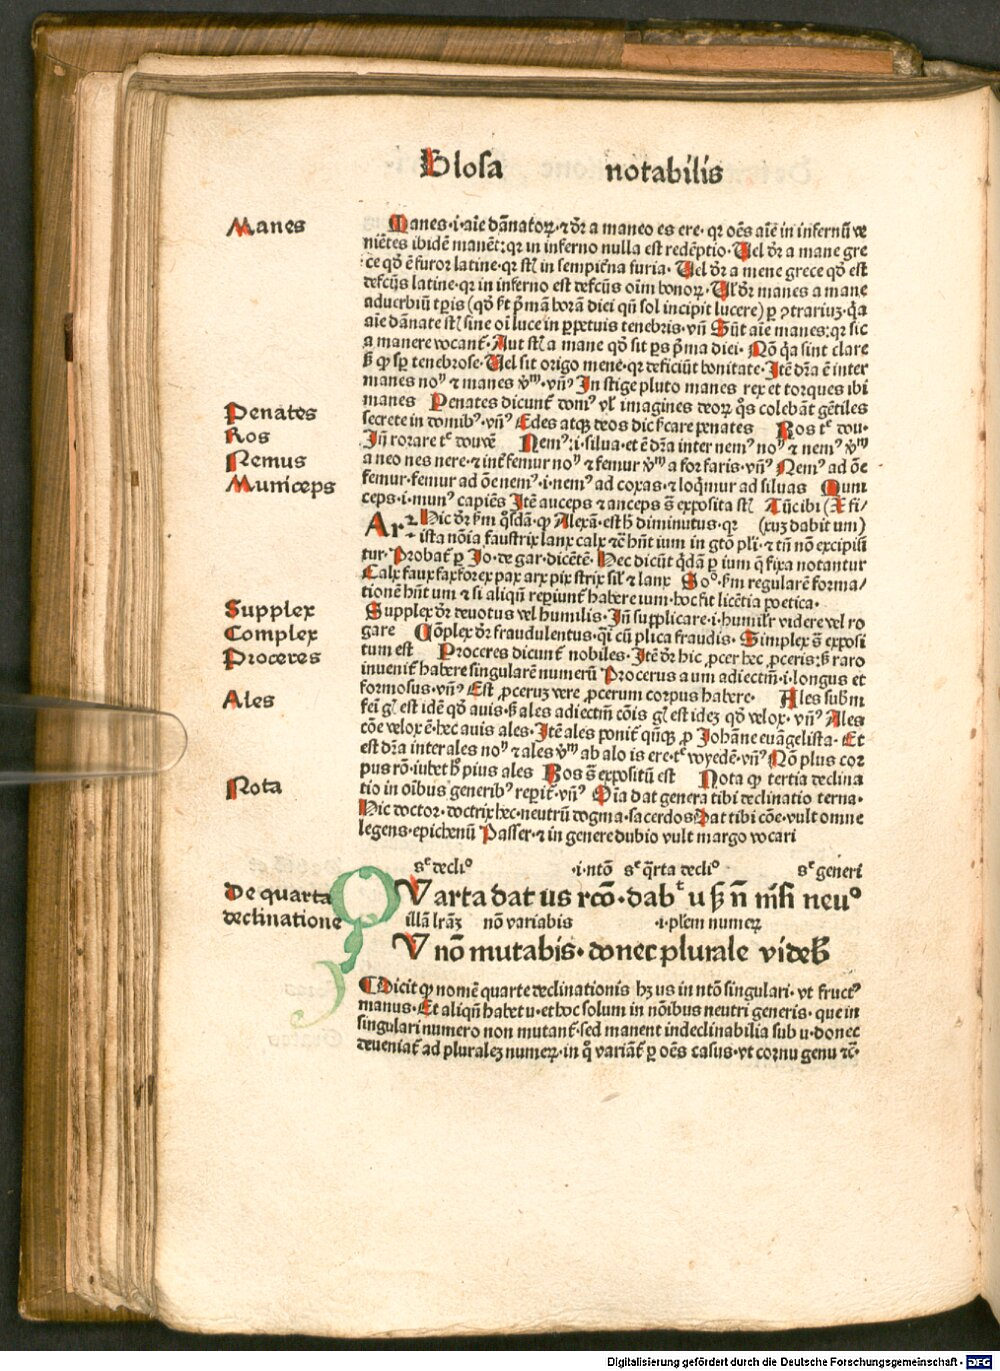 Glosa notabilis
Manes
Manes·i·aīe dānatoꝝ·⁊ dr̄ a maneo es ere·qꝛ oēs aīe in infernū ve
niētes ibidē manēt:qꝛ in inferno nulla est redēptio·Uel dr̄ a mane gre
ce qd̄ ē furor latine·qꝛ sūt in sempiterna furia·Uel dr̄ a mene grece qd̄ est
defcūs latine·qꝛ in inferno est defcūs oim bonoꝝ·Ul dr̄ manes a mane
aduerbiū tꝑis (qd̄ s̄t p̄mā horā diei qn̄ sol incipit lucere) ꝑ ꝯtrariuz·qꝛ
aīe dānate sūt sine oī luce in ꝑpetuis tenebris·vn̄ Sūt aīe manes:qꝛ sic
a manere vocant̄·Aut sūt a mane qd̄ sit ꝑs p̄ma diei·Nō qꝛ sint clare
ß qꝛ sꝑ tenebrose·Uel sit origo mene·qꝛ deficiūt bonitate·Itē dr̄a ē inter
manes noꝰ ⁊ manes v̄m·vn̄ In stige pluto manes rex et torques ibi
manes Penates dicunt̄ domꝰ vl̄ imagines deoꝝ q̄s colebāt gētiles
Penates
secrete in domibꝰ·vn̄ Edes atqꝫ deos dic s̄care penates Ros tc̄ dou·
Ros
In̄ rorare tc̄ douwē Nemꝰ:i·silua·et ē dr̄a inter nemꝰ noꝰ ⁊ nemꝰ v̄m
Nemus
a neo nes nere·⁊ int̄ femur noꝰ ⁊ femur v̄m a for faris·vn̄ Nemꝰ ad ōe
femur·femur ad ōe nemꝰ·i·nemꝰ ad coxas·⁊ loqmur ad siluas Muni
Municeps
ceps·i·munꝰ capiēs Itē auceps ⁊ anceps s̄ exposita sūt Tūc ibi (X fi/
Ar⁊ Hic dr̄ s̄m q̄sdā·qꝙ Alexā·est h̄ diminutus·qꝛ (xuz dabit um)
ista nōia faustrix lanx calx ⁊c̄ hn̄t ium in gtō pl̄i·⁊ tn̄ nō excipiū
tur·Probat̄ ꝑ Jo·de gar·dicētē·Hec dicūt q̄dā ꝑ ium q̄ fixa notantur
Calx faux fax forex pax arx pix strix sil̄ ⁊ lanx Soᵒ·s̄m regularē forma/
tionē hn̄t um ⁊ si aliqn̄ reꝑiunt̄ habere ium·hoc fit licētia poetica·
Supplex
Supplex dr̄ deuotus vel humilis·In̄ supplicare·i·humilr̄ videre vel ro
Complex
gare Cōplex dr̄ fraudulentus·qi cū plica fraudis·Simplex s̄ exposi
Proceres
tum est Proceres dicunt̄ nobiles·Itē dr̄ hic ꝓcer hec ꝓceris:ß raro
inuenit̄ habere singularē numerū Procerus a um adiectiū·i·longus et
formosus·vn̄ Est ꝓceruz vere ꝓcerum corpus habere· Ales subm
Ales
fei gl̄ est idē qd̄ auis·ß ales adiectiū cōis gl̄ est idez qd̄ velox·vn̄ Ales
cōe velox ē·hec auis ales·Itē ales ponit̄ qn̄qꝫ ꝓ Johāne euāgelista·Et
est dr̄a inter ales noꝰ ⁊ ales v̄m ab alo is ere·tc̄ voyedē·vn̄ Nō plus cor
pus rō·iubet h̄ pius ales Bos s̄ expositū est Nota qꝙ tertia declina
Nota
tio in oībus generibꝰ reꝑit̄·vn̄ Oīa dat genera tibi declinatio terna·
Hic doctor·doctrix hec·neutrū dogma·sacerdos Dat tibi cōe·vult omne
legens·epichenū Passer·⁊ in genere dubio vult margo vocari
sc̄ declio ·i·ntō sc̄ q̄rta declio sc̄ generi
De quarta
declinatione
QUarta dat us rcō·dabt u ß n̄ nisi neuᵒ
illā lr̄az nō variabis ·i·plem numeꝝ
U nō mutabis·donec plurale videb
Dicit qꝙ nomē quarte declinationis hꝫ us in ntō singulari·vt fructꝰ
manus·Et aliqn̄ habet u·et hoc solum in nōibus neutri generis·que in
singulari numero non mutant̄·sed manent indeclinabilia sub u·donec
deueniat̄ ad pluralez numeꝝ·in q̄ variāt̄ ꝑ oēs casus·vt cornu genu ⁊c̄·
Digitalisierung gefördert durch die Deutsche Forschungsgemeinschaft - DFG